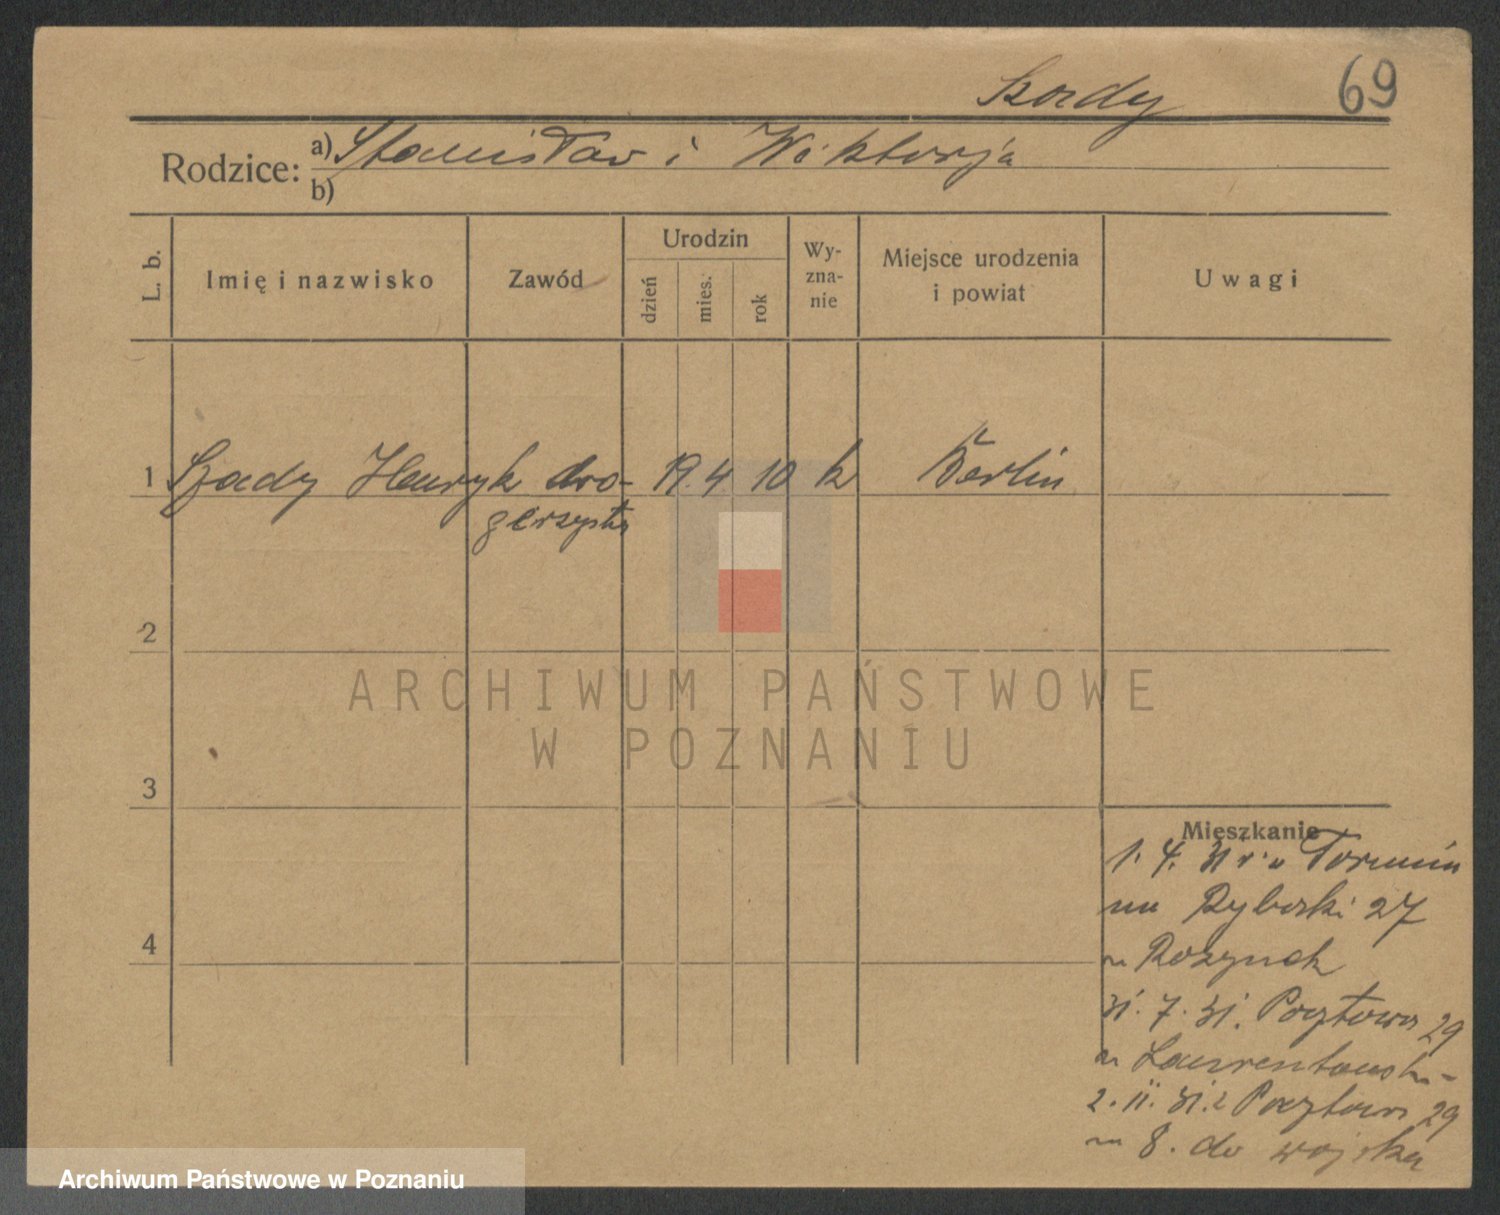 Szady 69
Rodzice: a) Stanisław i Wiktorja
b)
L. b. Imię i nazwisko Zawód Urodzin dzień mies. rok Wyznanie Miejsce urodzenia i powiat Uwagi
1 Szady Henryk dro- 19. 4 10 k Berlin
gerzysta
2
ARCHIWUM PAŃSTWOWE
W POZNANIU
3
Mieszkanie
1. 4. 31 Toruń
Rybaki 27
31. 7. 31. Pocztowa 29
2. 11. 31. z Pocztowa 29
8. do wojska
4
Archiwum Państwowe w Poznaniu